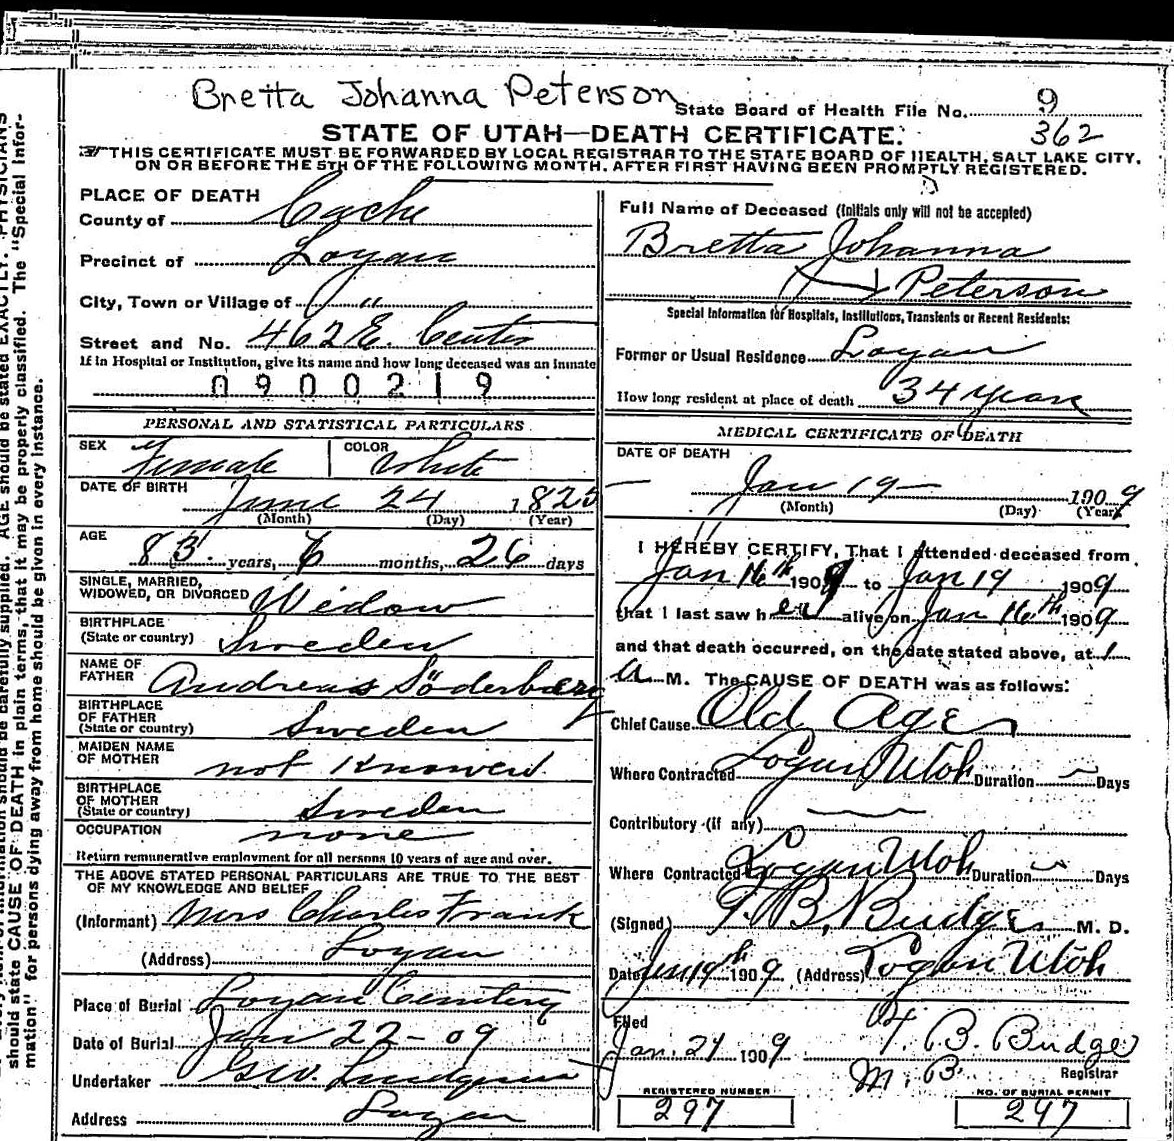 Bretta Johanna Peterson
State Board of Health File No. 9
362
STATE OF UTAH—DEATH CERTIFICATE.
THIS CERTIFICATE MUST BE FORWARDED BY LOCAL REGISTRAR TO THE STATE BOARD OF HEALTH, SALT LAKE CITY,
ON OR BEFORE THE 5TH OF THE FOLLOWING MONTH, AFTER FIRST HAVING BEEN PROMPTLY REGISTERED.
PLACE OF DEATH
County of Cache
Precinct of Logan
City, Town or Village of "
Street and No. 462 E. Center
If in Hospital or Institution, give its name and how long deceased was an inmate
0900219
PERSONAL AND STATISTICAL PARTICULARS
SEX Female COLOR White
DATE OF BIRTH June 24 1825
(Month) (Day) (Year)
AGE 83 years, 6 months, 26 days
SINGLE, MARRIED,
WIDOWED, OR DIVORCED Widow
BIRTHPLACE
(State or country) Sweden
NAME OF
FATHER Andreas Söderberg
BIRTHPLACE
OF FATHER
(State or country) Sweden
MAIDEN NAME
OF MOTHER not Knowed
BIRTHPLACE
OF MOTHER
(State or country) Sweden
OCCUPATION none
Return remunerative employment for all persons 10 years of age and over.
THE ABOVE STATED PERSONAL PARTICULARS ARE TRUE TO THE BEST
OF MY KNOWLEDGE AND BELIEF
(Informant) Mrs Charles Frank
(Address) Logan
Place of Burial Logan Cemitery
Date of Burial Jan 22-09
Undertaker G W. Lindquist
Address Logan
Full Name of Deceased (Initials only will not be accepted)
Bretta Johanna
Peterson
Special Information for Hospitals, Institutions, Transients or Recent Residents:
Former or Usual Residence Logan
How long resident at place of death 34 years
MEDICAL CERTIFICATE OF DEATH
DATE OF DEATH
Jan 19— 1909
(Month) (Day) (Year)
I HEREBY CERTIFY, That I attended deceased from
Jan 16th 1909 to Jan 19 1909
that I last saw her alive on Jan 16th 1909
and that death occurred, on the date stated above, at 1
a M. The CAUSE OF DEATH was as follows:
Chief Cause Old Age
Where Contracted Logan Utah Duration Days
Contributory (if any)
Where Contracted Logan Utah Duration Days
(Signed) T. B. Budge M. D.
Date Jan 19th 1909 (Address) Logan Utah
Filed
Jan. 21 1909 T. B. Budge
Registrar
REGISTERED NUMBER
297
NO. OF BURIAL PERMIT
247
AGE should be stated EXACTLY. PHYSICIANS
should state CAUSE OF DEATH in plain terms, that it may be properly classified. The "Special Infor-
mation" for persons dying away from home should be given in every instance.